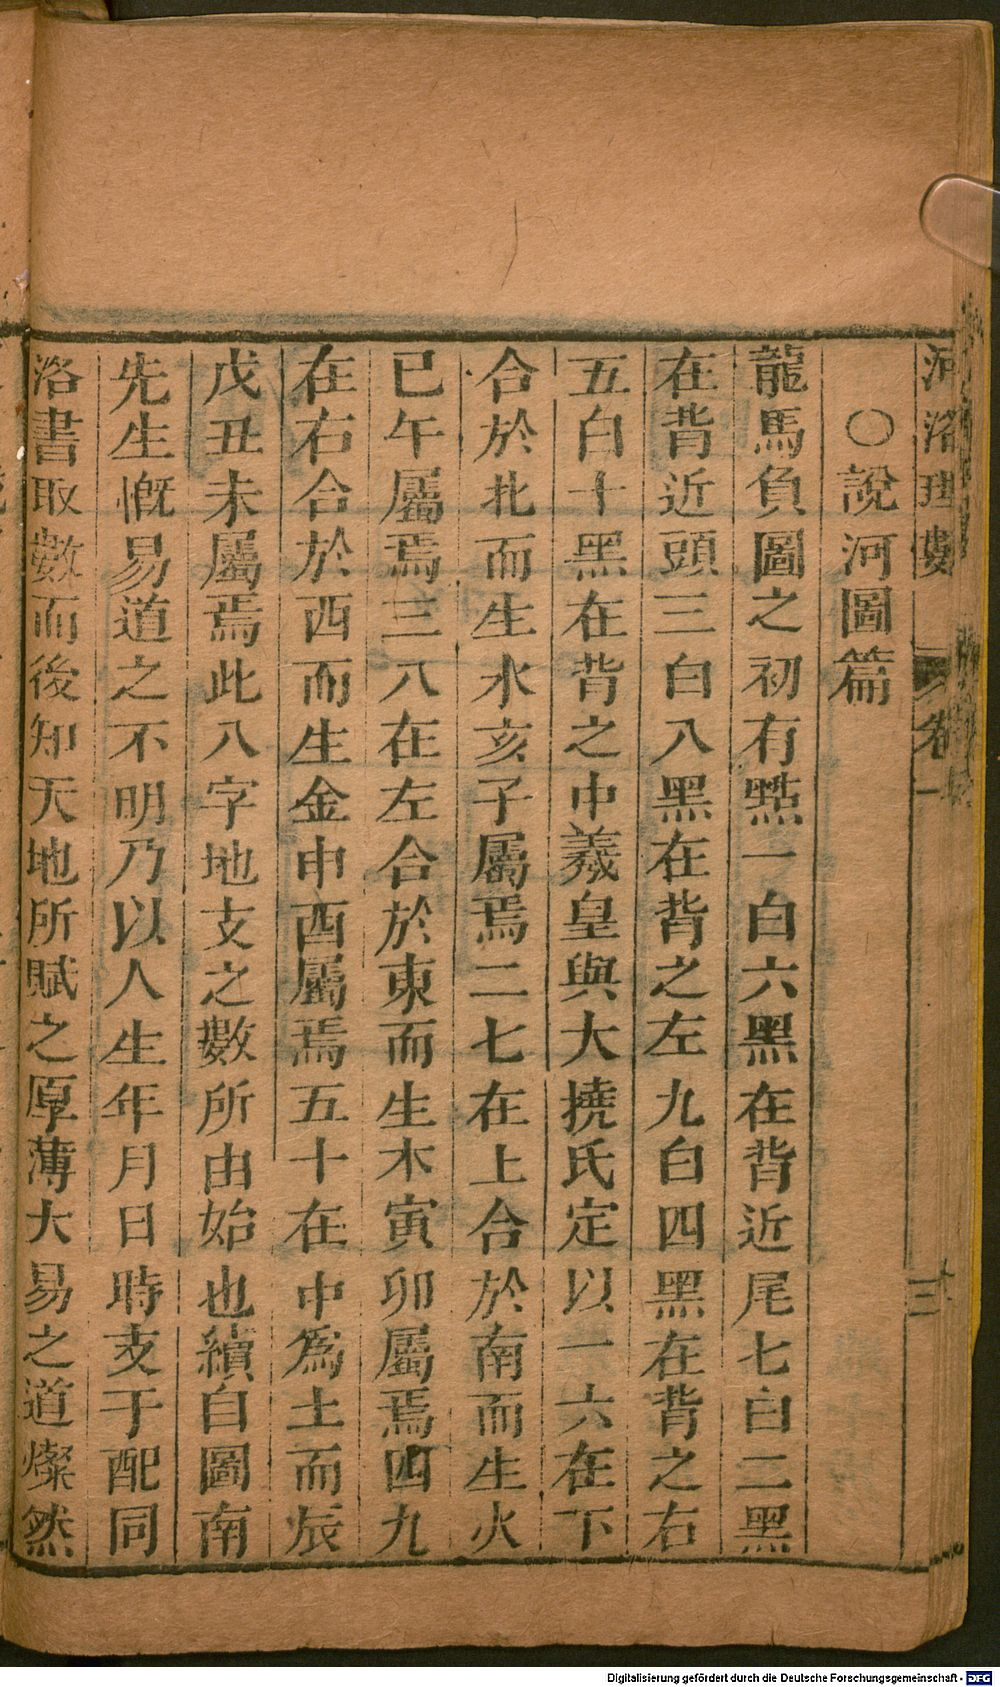 河洛理數 卷一 三
○說河圖篇
龍馬負圖之初有㸃一白六黑在背近尾七白二黑
在背近頭三白八黑在背之左九白四黑在背之右
五白十黑在背之中羲皇與大撓氏定以一六在下
合於北而生水亥子屬焉二七在上合於南而生火
巳午屬焉三八在左合於東而生木寅卯屬焉四九
在右合於西而生金申酉屬焉五十在中爲土而辰
戊丑未屬焉此八字地支之數所由始也續自圖南
先生慨易道之不明乃以人生年月日時支于配同
洛書取數而後知天地所賦之厚薄大易之道燦然
Digitalisierung gefördert durch die Deutsche Forschungsgemeinschaft - DFG